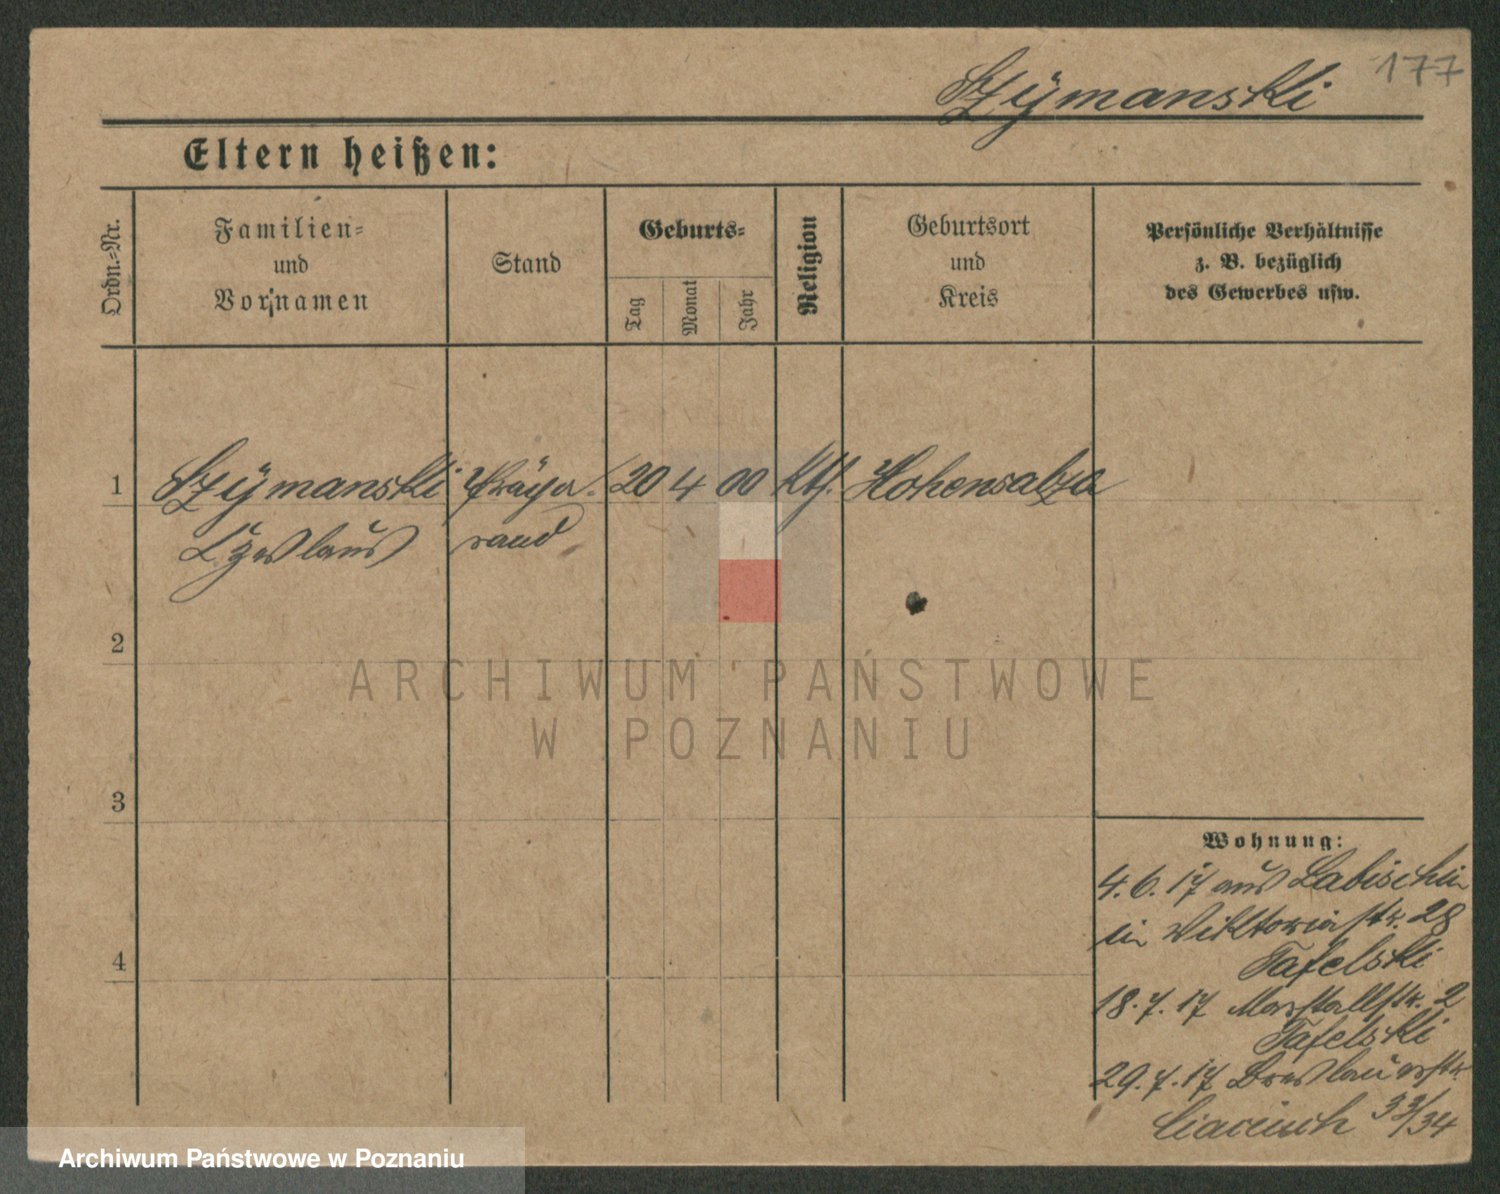 177
Szÿmanski
Eltern heißen:
Ordn.-Nr.
Familien-
und
Vornamen
Stand
Geburts-
Tag
Monat
Jahr
Religion
Geburtsort
und
Kreis
Persönliche Verhältnisse
z. B. bezüglich
des Gewerbes usw.
1
Szÿmanski
Präpa-
20
4
00
Kth.
Hohensalza
Czeslaus
rand
2
3
4
Wohnung:
4.6.17 aus Labischin
in Viktoriastr. 28
Tafelski
18.7.17 Marstallstr. 2
Tafelski
29.7.17 Breslauerstr.
33/34
ARCHIWUM PAŃSTWOWE
W POZNANIU
Archiwum Państwowe w Poznaniu